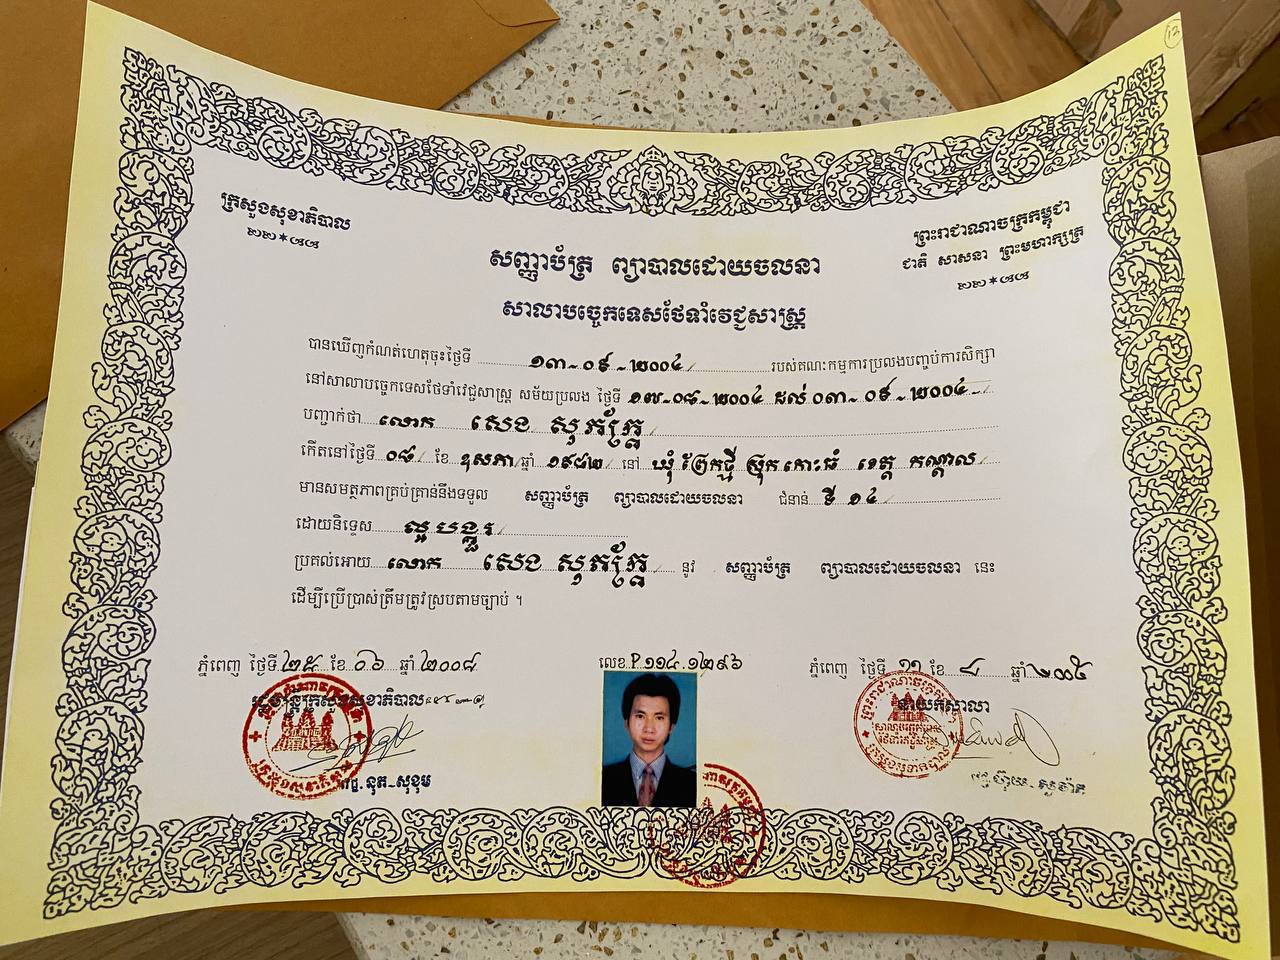 12
ព្រះរាជាណាចក្រកម្ពុជា
ជាតិ សាសនា ព្រះមហាក្សត្រ
ក្រសួងសុខាភិបាល
សញ្ញាប័ត្រ ព្យាបាលដោយចលនា
សាលាបច្ចេកទេសថែទាំវេជ្ជសាស្ត្រ
បានឃើញកំណត់ហេតុចុះថ្ងៃទី ១៣-០៩-២០០៤ របស់គណៈកម្មការប្រលងបញ្ចប់ការសិក្សា
នៅសាលាបច្ចេកទេសថែទាំវេជ្ជសាស្ត្រ សម័យប្រលង ថ្ងៃទី ១៧-០៨-២០០៤ ដល់ ០៣-០៩-២០០៤
បញ្ជាក់ថា លោក សេង សុភក្ត្រែ
កើតនៅថ្ងៃទី ០៨ ខែ ឧសភា ឆ្នាំ ១៩៨២ នៅ ឃុំ ព្រែកថ្មី ស្រុក កោះធំ ខេត្ត កណ្តាល
មានសមត្ថភាពគ្រប់គ្រាន់នឹងទទួល សញ្ញាប័ត្រ ព្យាបាលដោយចលនា ជំនាន់ ទី ១៤
ដោយនិទ្ទេស ល្អបង្គួរ
ប្រគល់អោយ លោក សេង សុភក្ត្រែ នូវ សញ្ញាប័ត្រ ព្យាបាលដោយចលនា នេះ
ដើម្បីប្រើប្រាស់ត្រឹមត្រូវស្របតាមច្បាប់ ។
ភ្នំពេញ ថ្ងៃទី ២៥ ខែ ០៦ ឆ្នាំ ២០០៨
រដ្ឋមន្ត្រីក្រសួងសុខាភិបាល
វេជ្ជ. នុត-សុខុម
លេខ P.១១៤.១២៩៦
ភ្នំពេញ ថ្ងៃទី ១១ ខែ ៤ ឆ្នាំ ២០០៥
នាយកសាលា